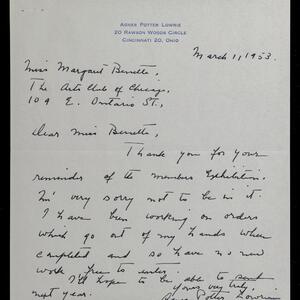 AGNES POTTER LOWRIE
20 RAWSON WOODS CIRCLE
CINCINNATI 20, OHIO
March 1, 1953.
Miss Margaret Bennett,
The Arts Club of Chicago,
109 E. Ontario St.,
Dear Miss Bennett,
Thank you for your
reminder of the members Exhibition.
I'm very sorry not to be in it.
I have been working on orders
which go out of my hands when
completed and so have no new
work free to enter.
I'll hope to be able to send
next year.
Yours very truly,
Agnes Potter Lowrie